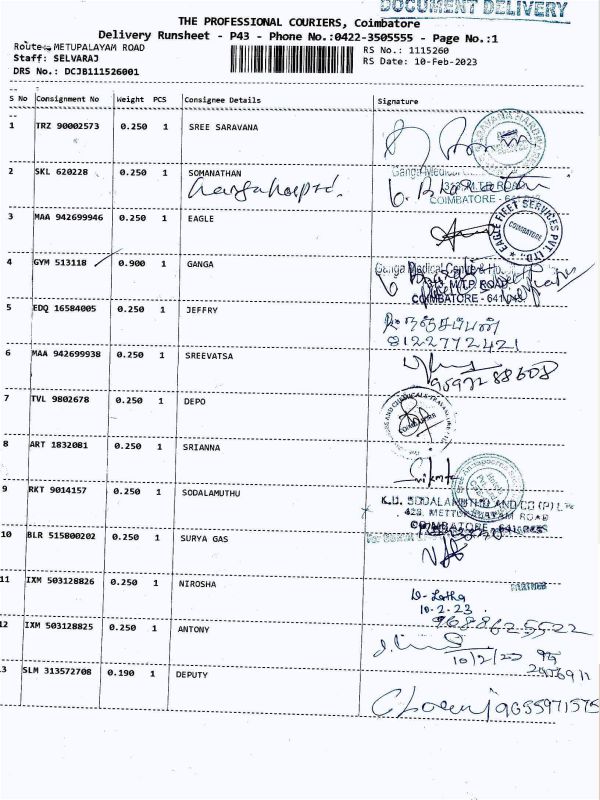 DOCUMENT DELIVERY
THE PROFESSIONAL COURIERS, Coimbatore
Delivery Runsheet - P43 - Phone No.:0422-3505555 - Page No.:1
Route: METUPALAYAM ROAD
Staff: SELVARAJ
DRS No.: DCJB111526001
RS No.: 1115260
RS Date: 10-Feb-2023
S No Consignment No Weight PCS Consignee Details Signature
1 TRZ 90002573 0.250 1 SREE SARAVANA
2 SKL 620228 0.250 1 SOMANATHAN
Ganga Medical
M.T.P. ROAD
COIMBATORE - 641
3 MAA 942699946 0.250 1 EAGLE
EAGLE FLEET SERVICES PVT. LTD.
COIMBATORE
4 GYM 513118 0.900 1 GANGA
Ganga Medical Centre &
M.T.P. ROAD
COIMBATORE - 641 043
5 EDQ 16584005 0.250 1 JEFFRY
8122772421
6 MAA 942699938 0.250 1 SREEVATSA
9597288608
7 TVL 9802678 0.250 1 DEPO
8 ART 1832081 0.250 1 SRIANNA
9 RKT 9014157 0.250 1 SODALAMUTHU
K.U. SODALAMUTHU AND CO (P) LTD
428, METTUPALAYAM ROAD
COIMBATORE - 641
10 BLR 515800202 0.250 1 SURYA GAS
11 IXM 503128826 0.250 1 NIROSHA
D- Latha
10.2.23
9688625522
12 IXM 503128825 0.250 1 ANTONY
10/2/23
13 SLM 313572708 0.190 1 DEPUTY
9655971575